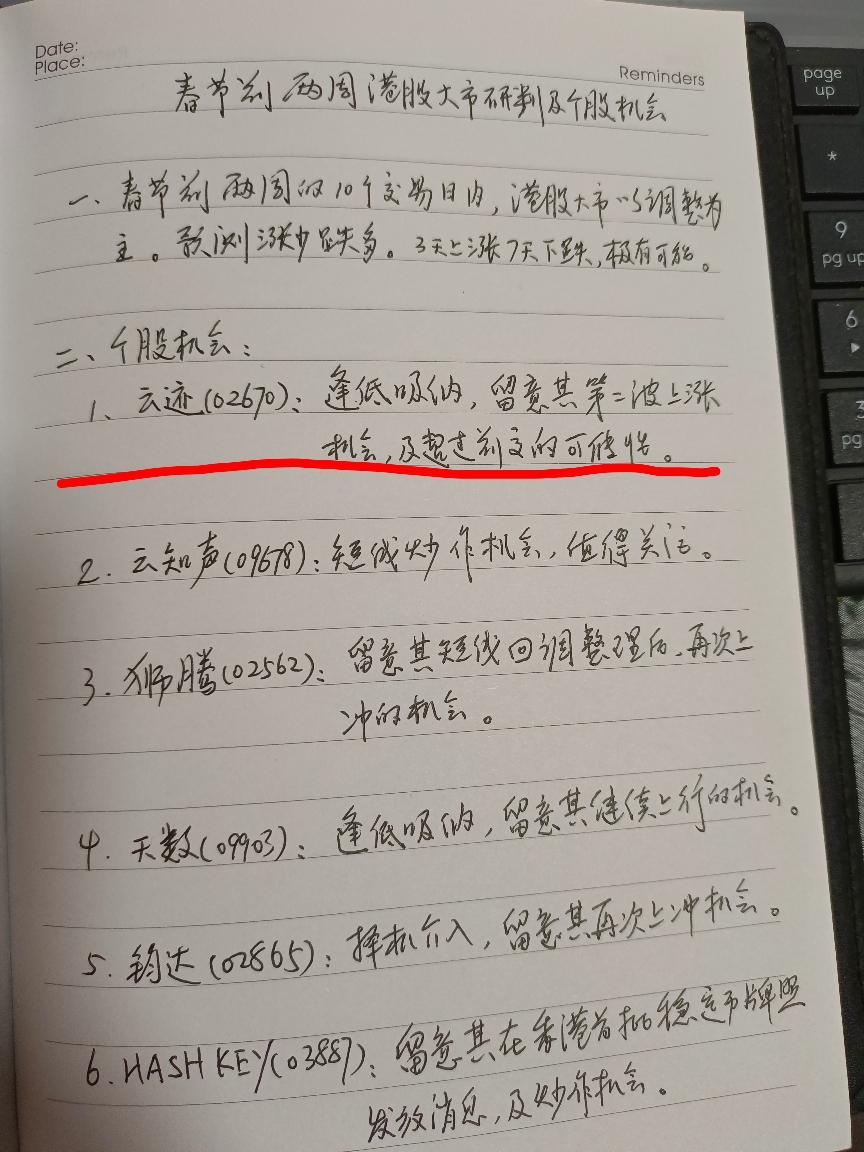 Date:
Place:
Reminders
春节前两周港股大市研判及个股机会
一、春节前两周的10个交易日内,港股大市以调整为
主。预测涨少跌多。3天上涨7天下跌,极有可能。
二、个股机会:
1、云迹(02670):逢低吸纳,留意其第二波上涨
机会,及超过前高的可能性。
2. 云知声(09678):短线炒作机会,值得关注。
3. 狮腾(02562):留意其短线回调整理后,再次上
冲的机会。
4. 天数(09903):逢低吸纳,留意其继续上行的机会。
5. 钧达(02865):择机介入,留意其再次上冲机会。
6. HASH KEY(03887):留意其在香港首批稳定币牌照
发放消息,及炒作机会。
page
up
*
9
pg up
6
3
pg